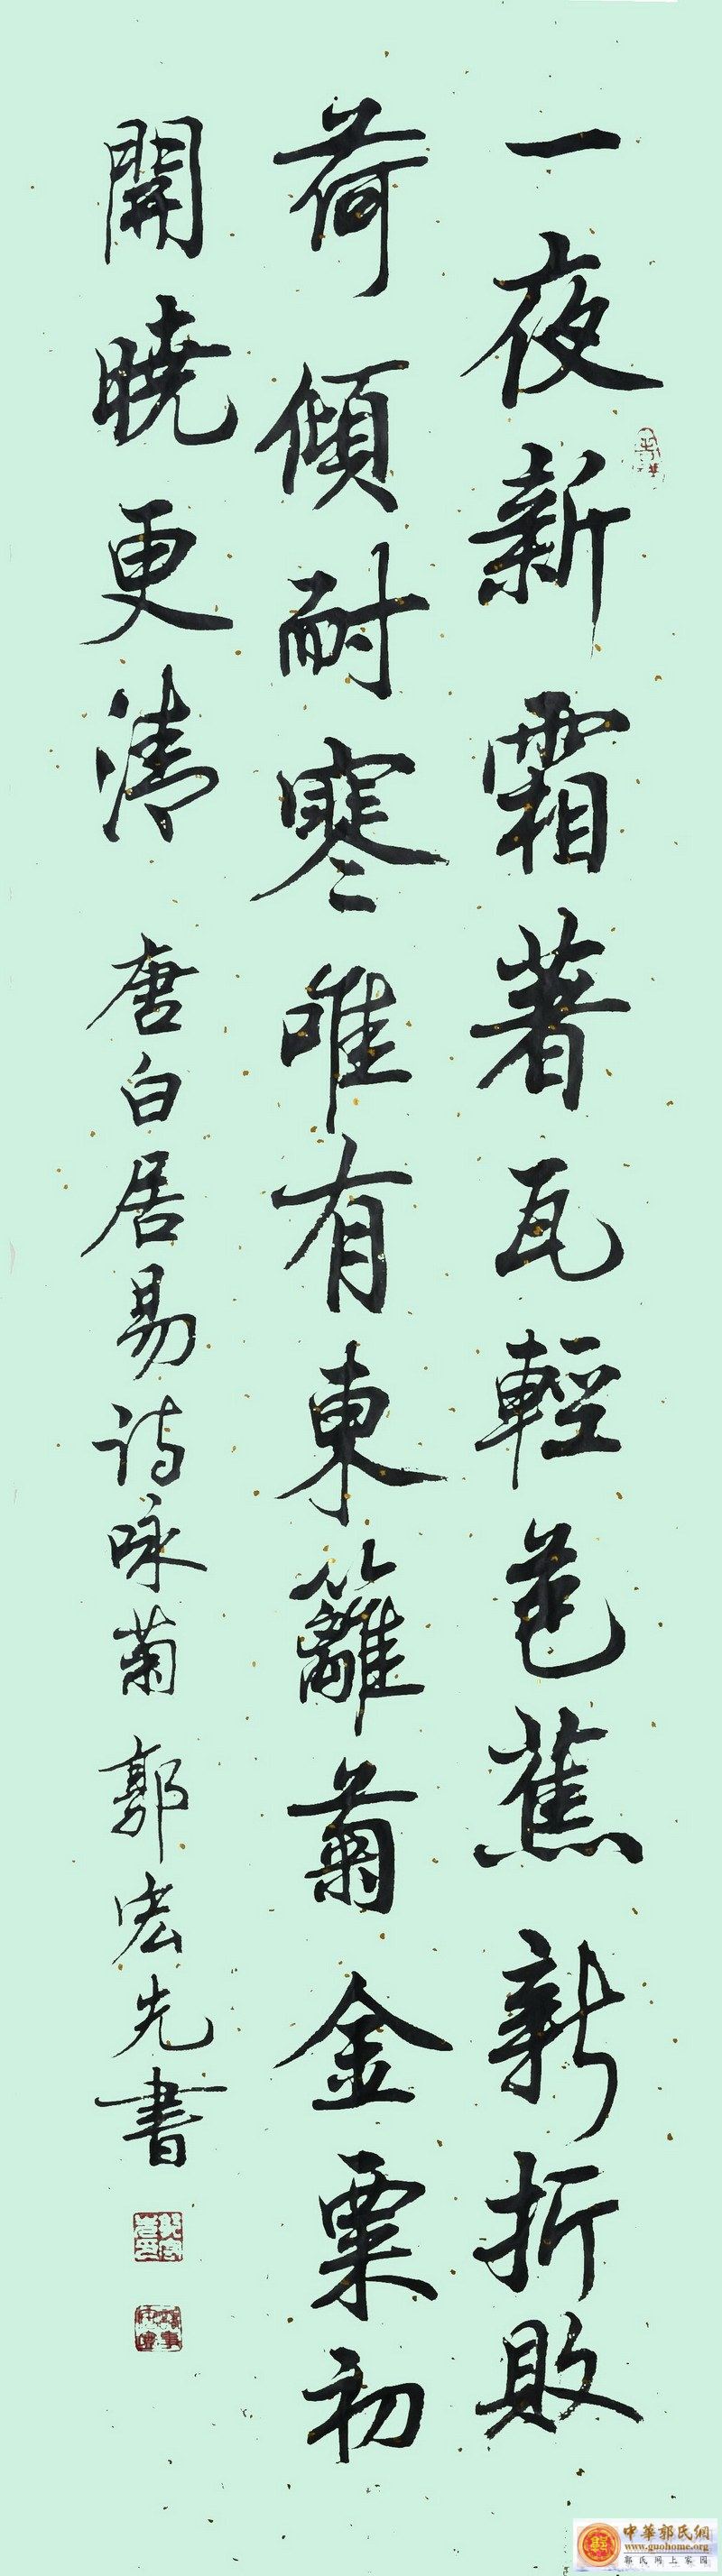 一夜新霜著瓦輕芭蕉新折敗
荷傾耐寒唯有東籬菊金粟初
開曉更清 唐白居易诗咏菊 郭宏先書
中華郭氏網
www.guohome.org
郭氏网上家园